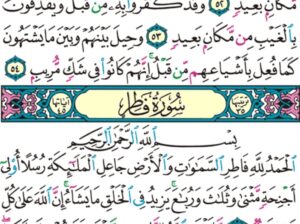 مَّكَانٍۭ بَعِيدٍ ٥٢ وَقَدْ كَفَرُوا۟ بِهِۦ مِن قَبْلُ ۖ وَيَقْذِفُونَ
بِٱلْغَيْبِ مِن مَّكَانٍۭ بَعِيدٍ ٥٣ وَحِيلَ بَيْنَهُمْ وَبَيْنَ مَا يَشْتَهُونَ
كَمَا فُعِلَ بِأَشْيَاعِهِم مِّن قَبْلُ ۚ إِنَّهُمْ كَانُوا۟ فِى شَكٍّ مُّرِيبٍۭ ٥٤
سُورَةُ فَاطِرٍ
بِسْمِ ٱللَّهِ ٱلرَّحْمَٰنِ ٱلرَّحِيمِ
ٱلْحَمْدُ لِلَّهِ فَاطِرِ ٱلسَّمَٰوَٰتِ وَٱلْأَرْضِ جَاعِلِ ٱلْمَلَٰٓئِكَةِ رُسُلًا أُو۟لِىٓ
أَجْنِحَةٍ مَّثْنَىٰ وَثُلَٰثَ وَرُبَٰعَ ۚ يَزِيدُ فِى ٱلْخَلْقِ مَا يَشَآءُ ۚ إِنَّ ٱللَّهَ عَلَىٰ كُلِّ